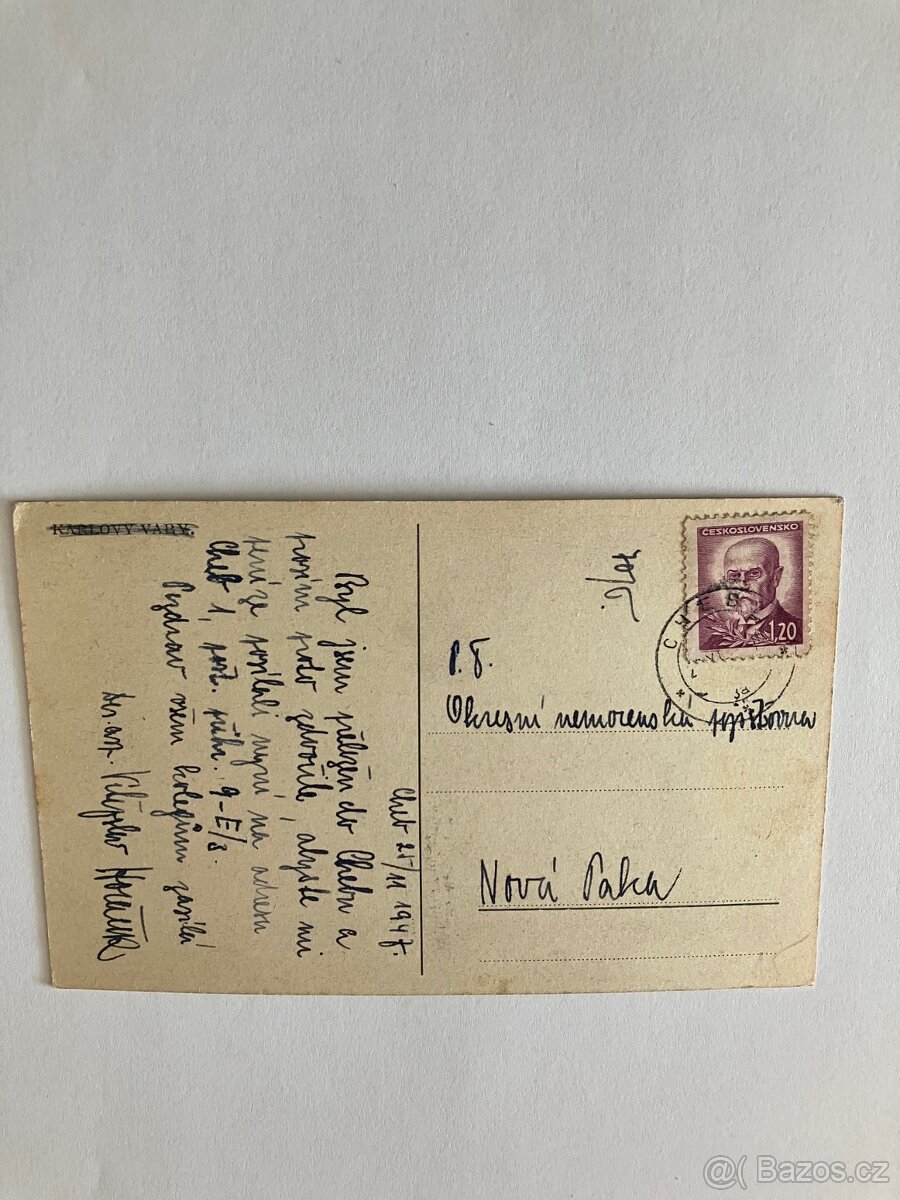 KARLOVY VARY.
Cheb 25/11 1947.
Byl jsem přeložen do Chebu a
prosím proto zdvořile, abyste mi
peníze posílali nyní na adresu
Cheb 1, pošt. přihr. 9-E/3.
Pozdrav všem kolegům zasílá
Vítězslav
ČESKOSLOVENSKO
1,20
CHEB
P. T.
Okresní nemocenská pojišťovna
Nová Paka
@ Bazos.cz